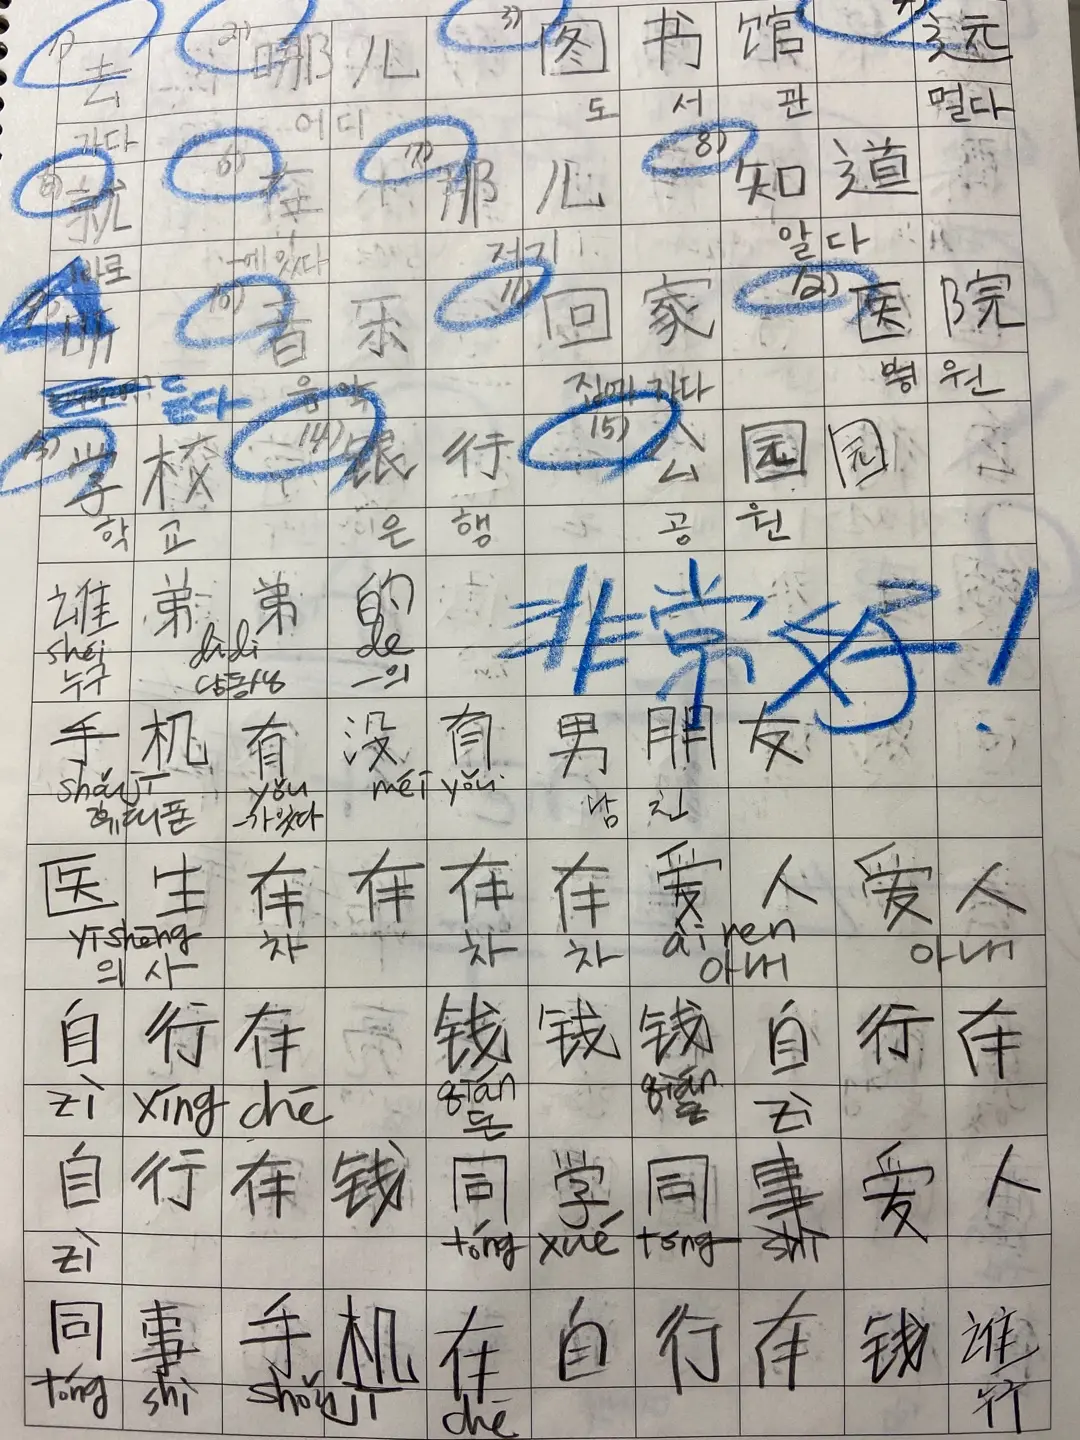 1) 去 2) 哪儿 3) 图书馆 4) 远
가다 어디 도서관 멀다
5) 就 6) 在 7) 那儿 8) 知道
바로 -에 있다 저기 알다
9) 听 10) 音乐 11) 回家 12) 医院
듣다 음악 집에 가다 병원
13) 学校 14) 银行 15) 公园 园
학교 은행 공원
谁 弟弟 的
shéi dìdi de
누구 남동생 -의
非常好!
手机 有 没有 男朋友
shǒujī yǒu méi yǒu
휴대폰 -가 있다 남친
医生 车 车 车 车 爱人 爱人
yīshēng 차 차 차 ài ren 아내
의사 아내
自行车 钱 钱 钱 自行车
zì xíng chē qián qián zì
돈 돈
自行车 钱 同学 同事 爱人
zì tóng xué tóng shì
同事 手机 车 自行车 钱 谁
tóng shì shǒujī chē 누구